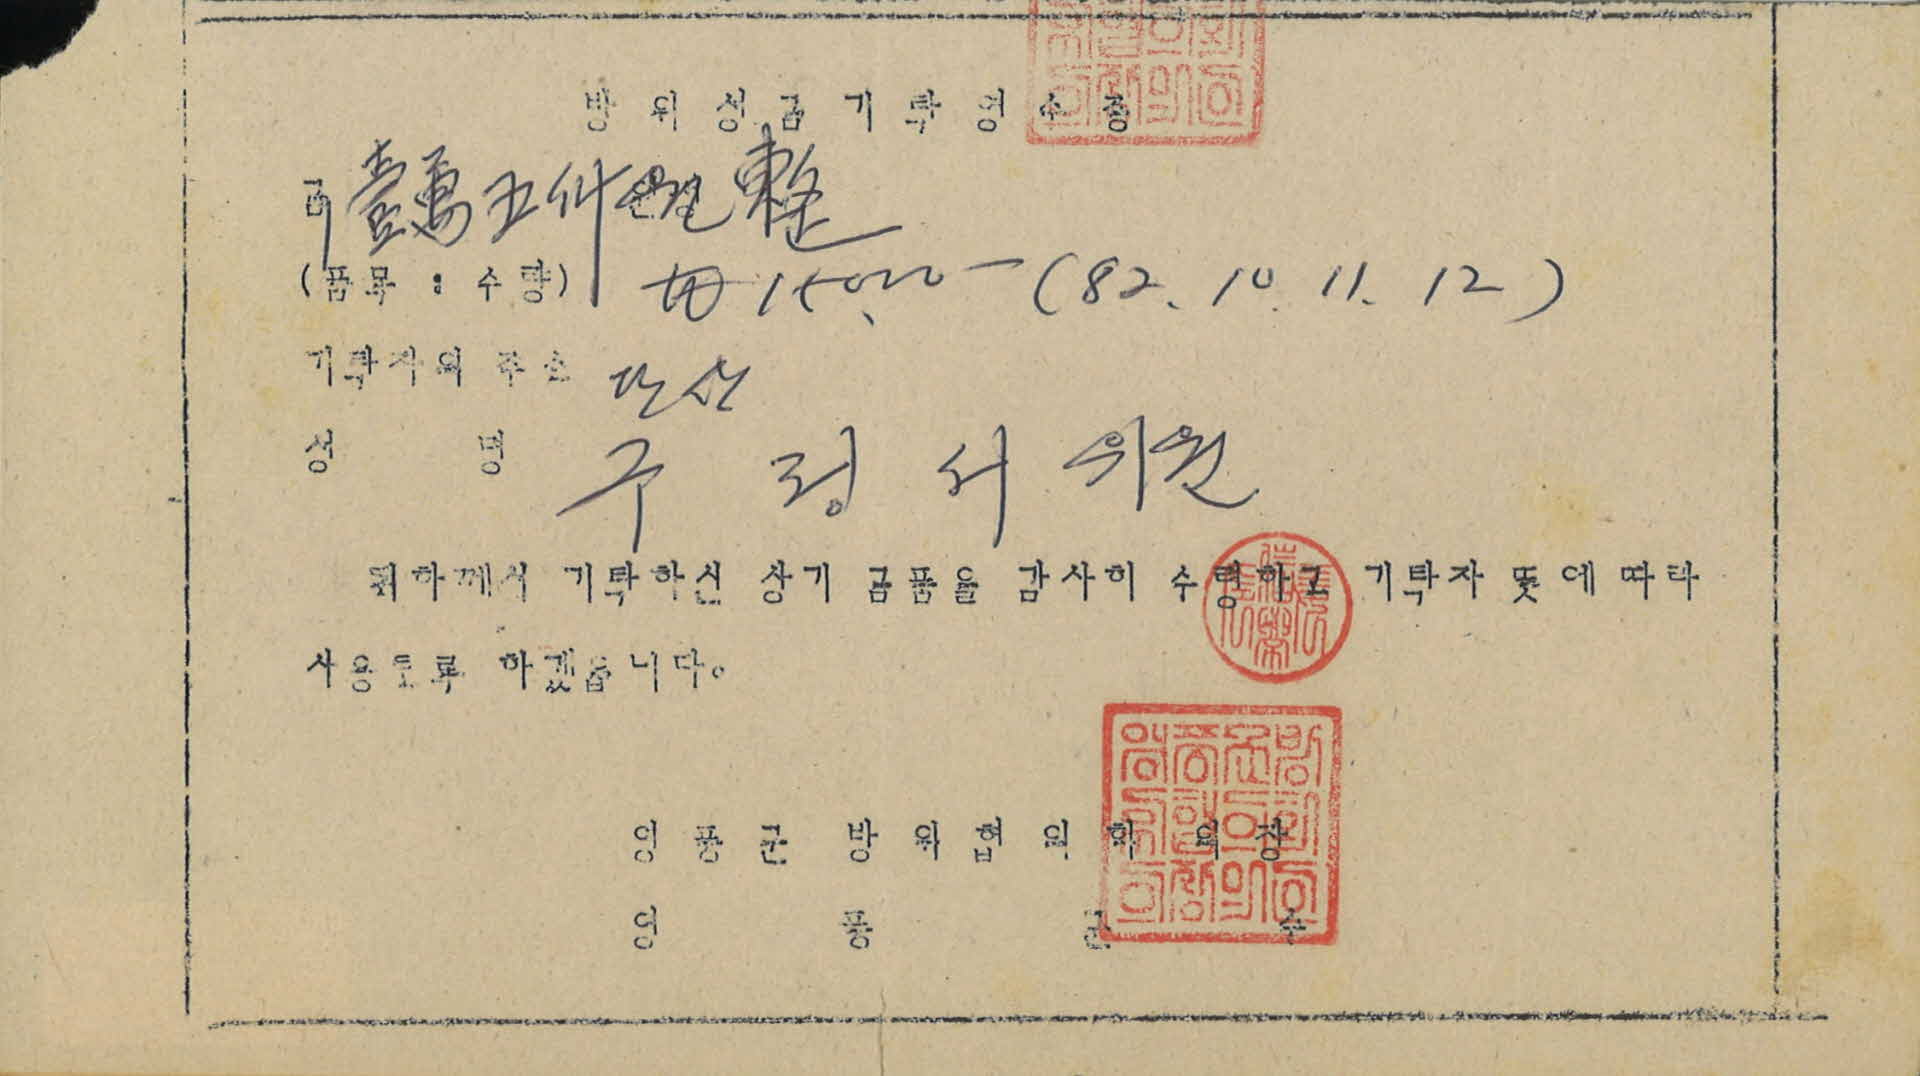 방위성금기탁영수증
금 壹萬五仟원정 整
(품목 : 수량) @ 15,000 - (82. 10. 11. 12)
기탁자의 주소 단산
성 명 구 정 서 위원
귀하께서 기탁하신 상기 금품을 감사히 수령하고 기탁자 뜻에 따라
사용토록 하겠읍니다.
영풍군방위협의회 의장
영 풍 군 수